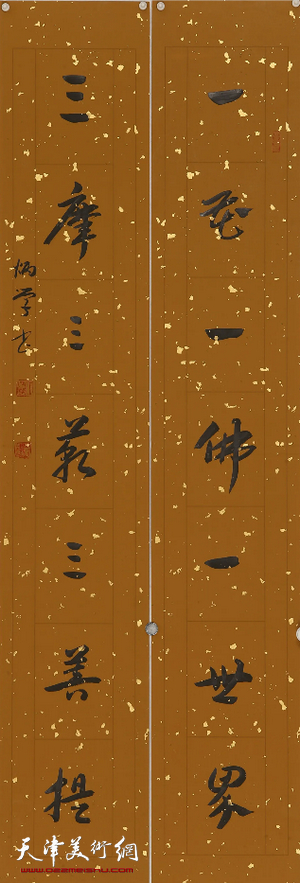 一花一佛一世界
三摩三藐三菩提
炳学书
天津美術網
www.022meishu.com